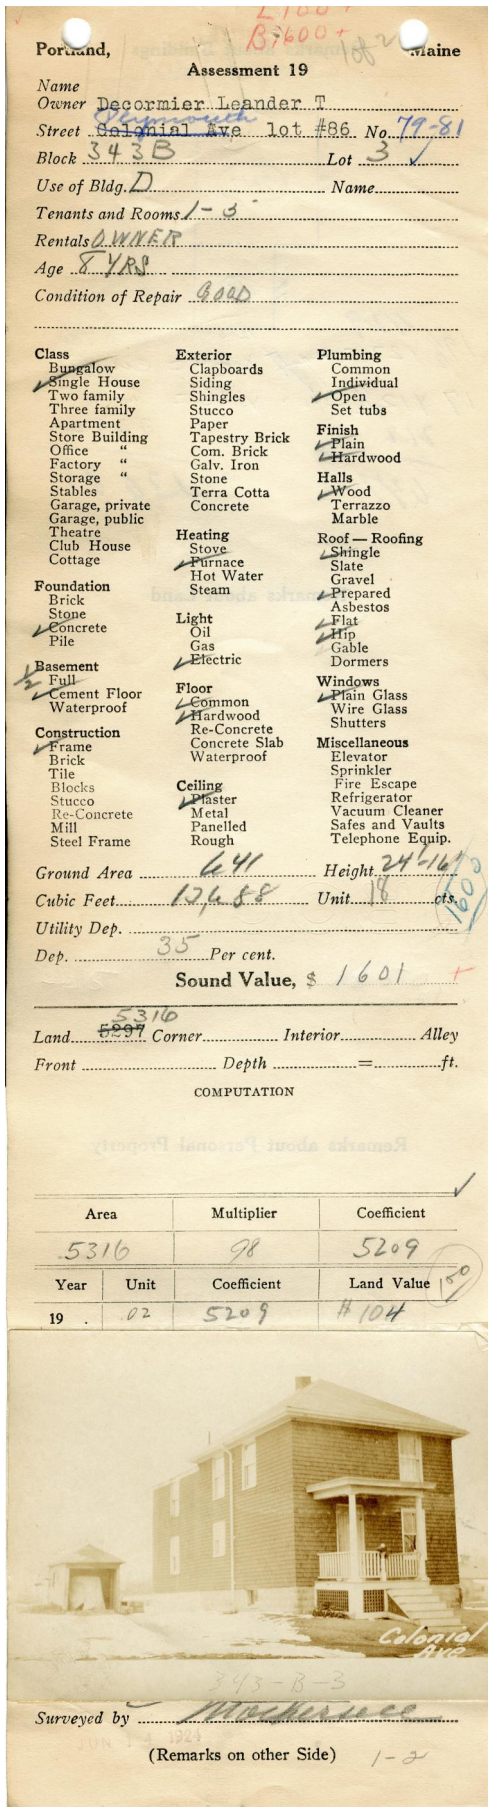 L 100 +
B 1600 +
1 of 2
Portland, Maine
Assessment 19
Name
Owner Decormier Leander T
Plymouth
Street Colonial Ave lot #86 No. 79-81
Block 343B Lot 3
Use of Bldg. D Name
Tenants and Rooms 1-5
Rentals OWNER
Age 8 YRS
Condition of Repair GOOD
Class
Bungalow
Single House
Two family
Three family
Apartment
Store Building
Office "
Factory "
Storage "
Stables
Garage, private
Garage, public
Theatre
Club House
Cottage
Foundation
Brick
Stone
Concrete
Pile
Basement
1/2 Full
Cement Floor
Waterproof
Construction
Frame
Brick
Tile
Blocks
Stucco
Re-Concrete
Mill
Steel Frame
Exterior
Clapboards
Siding
Shingles
Stucco
Paper
Tapestry Brick
Com. Brick
Galv. Iron
Stone
Terra Cotta
Concrete
Heating
Stove
Furnace
Hot Water
Steam
Light
Oil
Gas
Electric
Floor
Common
Hardwood
Re-Concrete
Concrete Slab
Waterproof
Ceiling
Plaster
Metal
Panelled
Rough
Plumbing
Common
Individual
Open
Set tubs
Finish
Plain
Hardwood
Halls
Wood
Terrazzo
Marble
Roof — Roofing
Shingle
Slate
Gravel
Prepared
Asbestos
Flat
Hip
Gable
Dormers
Windows
Plain Glass
Wire Glass
Shutters
Miscellaneous
Elevator
Sprinkler
Fire Escape
Refrigerator
Vacuum Cleaner
Safes and Vaults
Telephone Equip.
Ground Area 641 Height 24'-16'
Cubic Feet 13,688 Unit 18 cts.
1600
Utility Dep.
Dep. 35 Per cent.
Sound Value, $ 1601 +
5316
Land 5297 Corner Interior Alley
Front Depth = ft.
COMPUTATION
Area Multiplier Coefficient
5316 98 5209
Year Unit Coefficient Land Value
19 . .02 5209 $ 104
Colonial
Ave
343-B-3
Surveyed by
(Remarks on other Side) 1-2